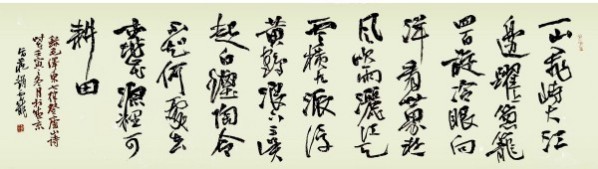 一山飛峙大江
邊躍上葱蘢
四百旋冷眼向
洋看世界熱
風吹雨灑江天
雲橫九派浮
黃鶴浪下三吳
起白煙陶令
不知何處去
桃花源裡可
耕田
錄毛澤東七律登廬山詩
壬寅冬月於北京